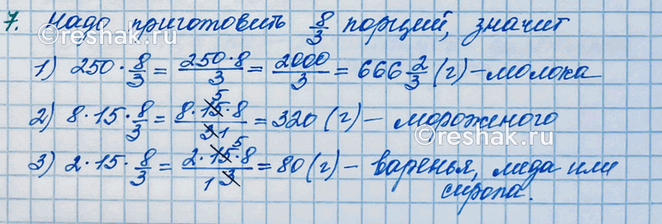 7. Надо приготовить 8/3 порций, значит
1) 250 · 8/3 = 250·8/3 = 2000/3 = 666 2/3 (г) – молока
2) 8 · 15 · 8/3 = 8·15·8/3 5 1 = 320 (г) – мороженого
3) 2 · 15 · 8/3 = 2·15·8/3 5 1 = 80 (г) – варенья, меда или
сиропа.